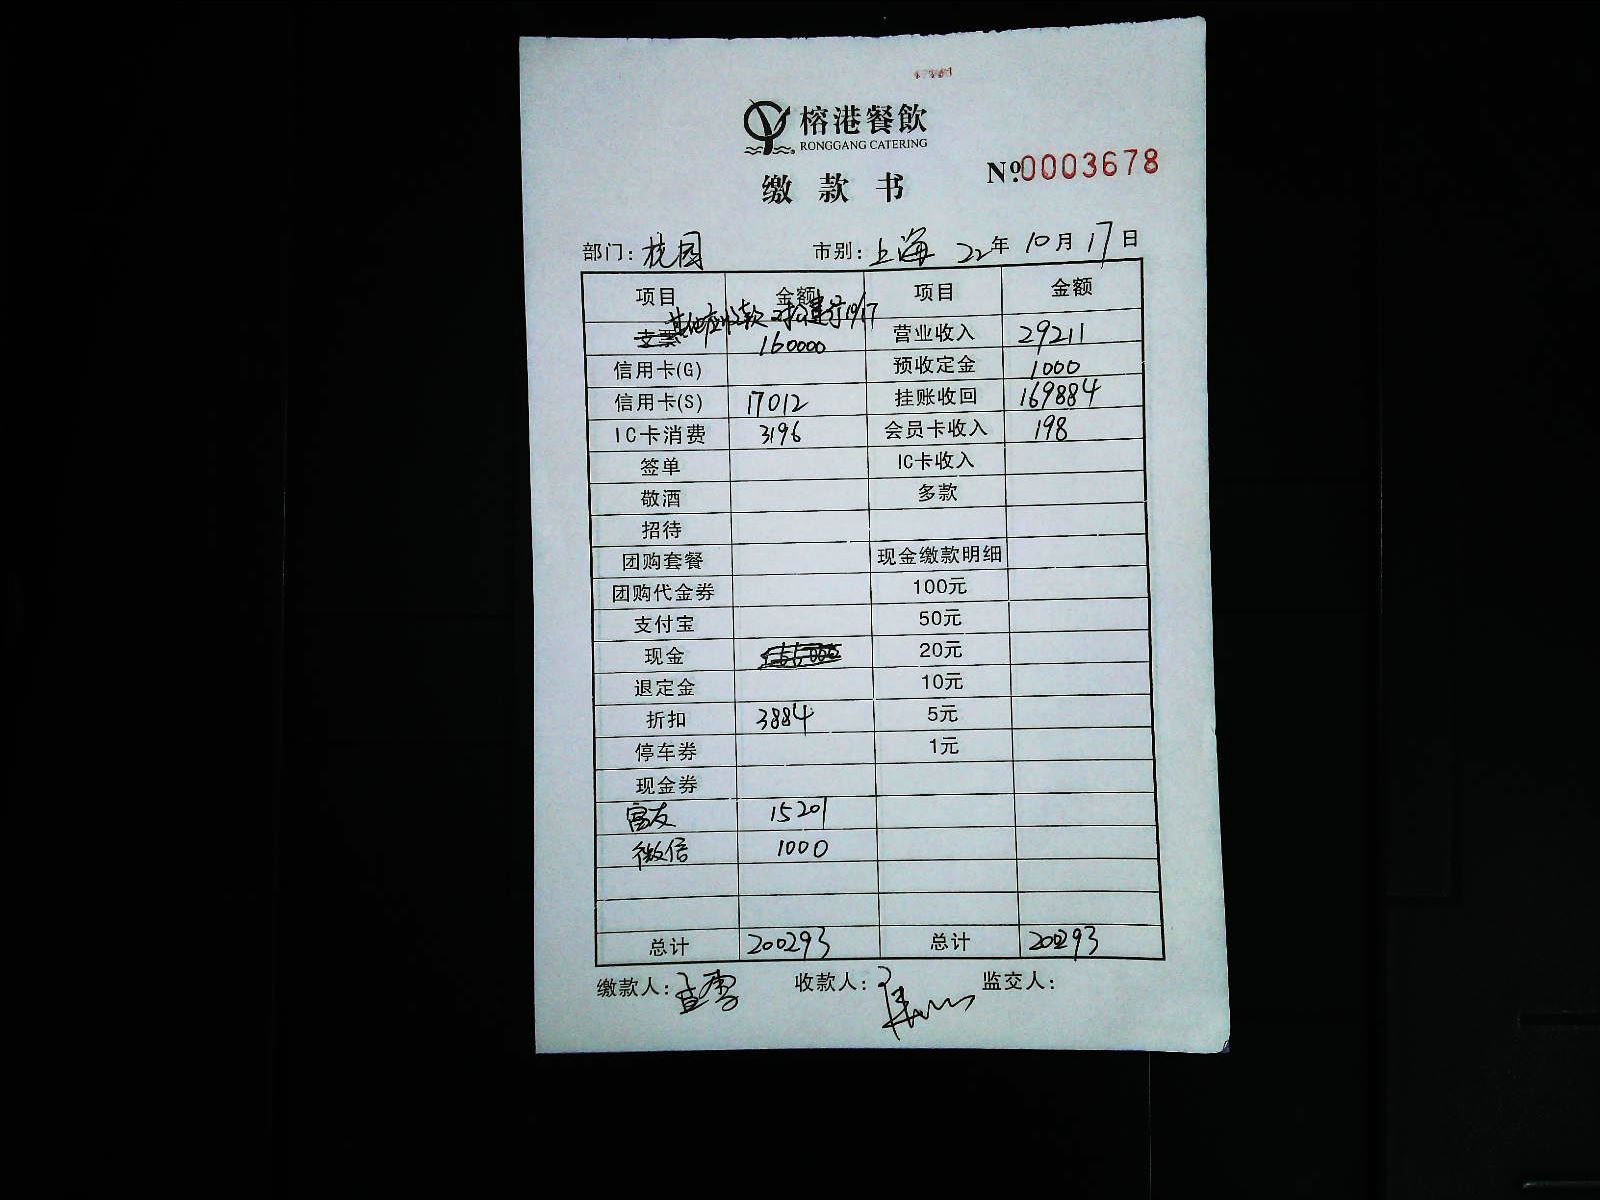 榕港餐飲
RONGGANG CATERING
缴款书
№ 0003678
部门: 桃园 市别: 上海 22年 10月 17日
项目 金额 项目 金额
其他应收款
支票 160000 营业收入 29211
信用卡(G) 预收定金 1000
信用卡(S) 17012 挂账收回 169884
IC卡消费 3196 会员卡收入 198
签单 IC卡收入
敬酒 多款
招待
团购套餐 现金缴款明细
团购代金券 100元
支付宝 50元
现金 20元
退定金 10元
折扣 3884 5元
停车券 1元
现金券
富友 15201
微信 1000
总计 200293 总计 200293
缴款人: 收款人: 监交人: